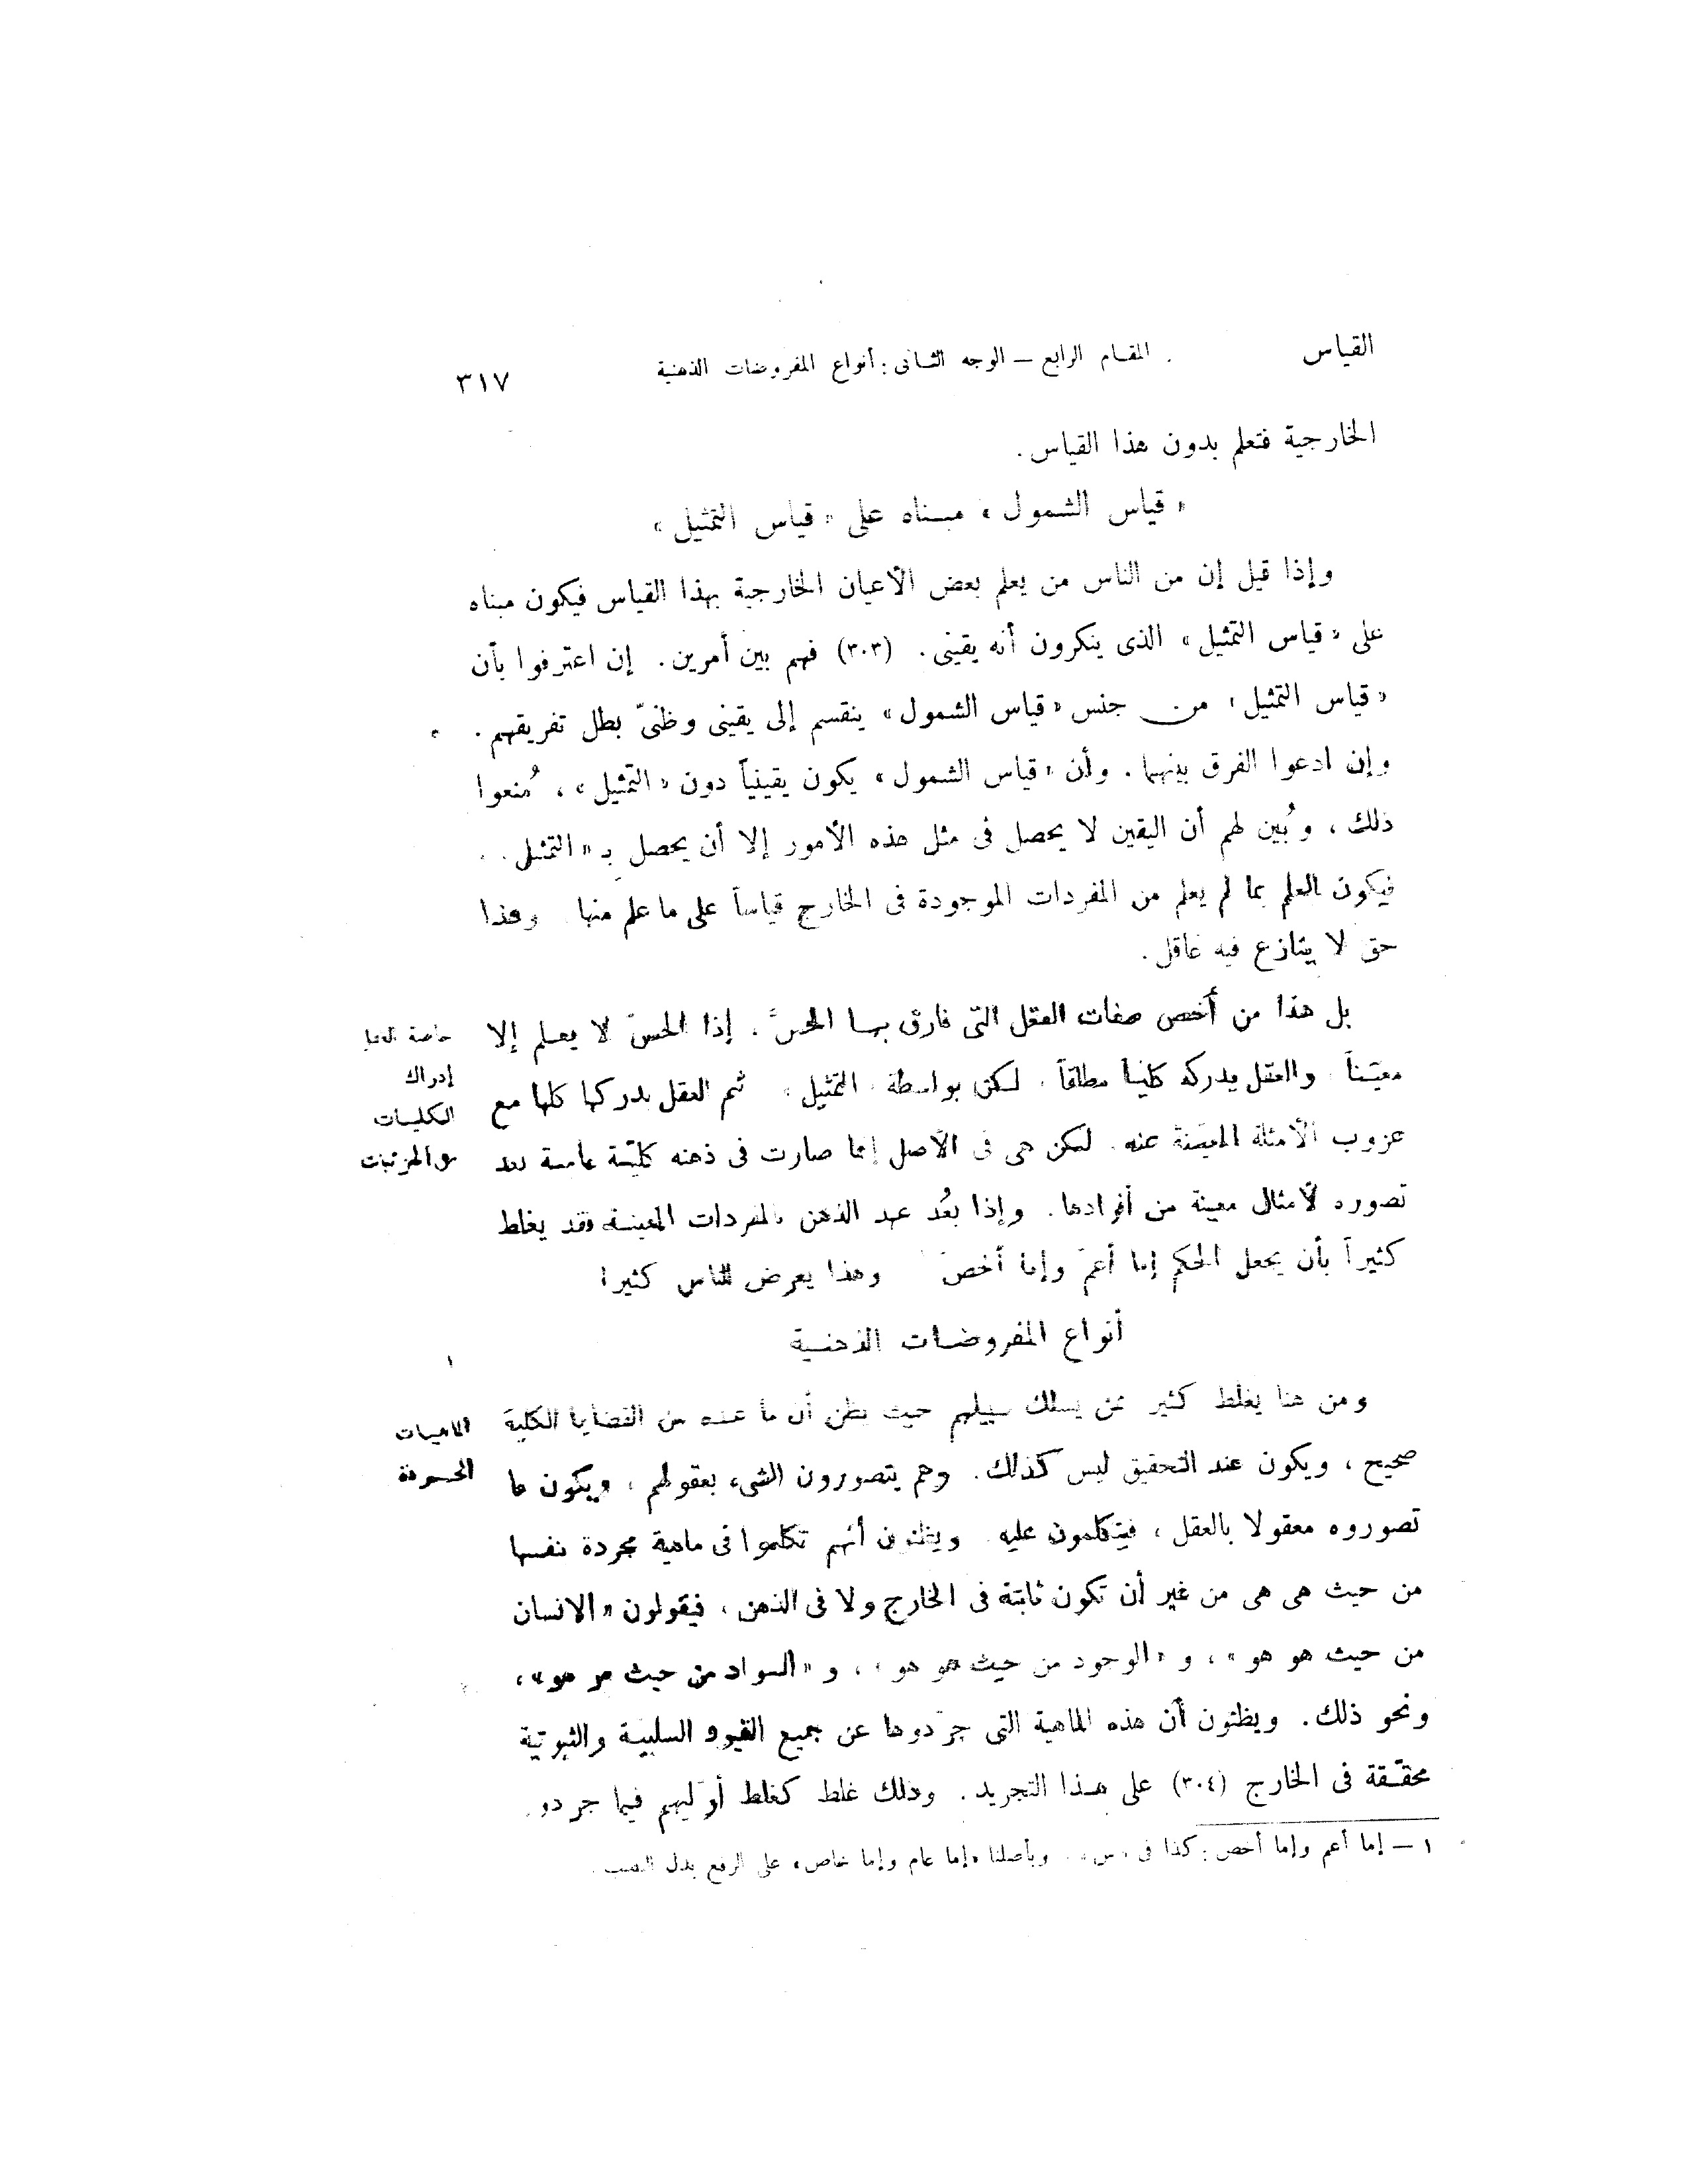 القياس
المقام الرابع — الوجه الثانى : أنواع المفروضات الذهنية
٣١٧
الخارجية فتعلم بدون هذا القياس .
« قياس الشمول » مبناه على « قياس التمثيل »
وإذا قيل إن من الناس من يعلم بعض الأعيان الخارجية بهذا القياس فيكون مبناه
على « قياس التمثيل » الذى ينكرون أنه يقينى . (٣٠٣) فهم بين أمرين . إن اعترفوا بأن
« قياس التمثيل » من جنس « قياس الشمول » ينقسم إلى يقينى وظنىّ بطل تفريقهم .
وإن ادعوا الفرق بينهما . وأن « قياس الشمول » يكون يقينياً دون « التمثيل » ، مُنعوا
ذلك ، وبُين لهم أن اليقين لا يحصل فى مثل هذه الأمور إلا أن يحصل بـ « التمثيل .
فيكون العلم بما لم يعلم من المفردات الموجودة فى الخارج قياساً على ما علم منها وهذا
حق لا ينازع فيه عاقل .
بل هذا من أخص صفات العقل التى فارق بها الحسّ . إذا الحسّ لا يعلم إلا
معيّناً والعقل يدركه كليّاً مطلقاً ، لكن بواسطة « التمثيل » ثم العقل يدركها كلها مع
عزوب الأمثلة المعيّنة عنه . لكن هى فى الأصل إنما صارت فى ذهنه كليّة عامة بعد
تصوره لأمثال معينة من أفرادها . وإذا بعُد عهد الذهن بالمفردات المعينة فقد يغلط
كثيراً بأن يجعل الحكم إما أعمّ وإما أخصّ وهذا يعرض للناس كثيرا
خاصة
إدراك
الكليات
من الجزئيات
١
أنواع المفروضات الذهنية
ومن هنا يغلط كثير ممن يسلك سبيلهم حيث يظن أن ما عنده من القضايا الكلية
صحيح ، ويكون عند التحقيق ليس كذلك . وهم يتصورون الشىء بعقولهم ، ويكون ما
تصوروه معقولا بالعقل ، فيتكلمون عليه ويظنون أنهم تكلموا فى ماهية مجردة نفسها
من حيث هى هى من غير أن تكون ثابتة فى الخارج ولا فى الذهن ، فيقولون « الانسان
من حيث هو هو » ، و « الوجود من حيث هو هو » ، و « السواد من حيث هو هو » ،
ونحو ذلك . ويظنون أن هذه الماهية التى جرّدوها عن جميع القيود السلبية والثبوتية
محقّقة فى الخارج (٣٠٤) على هذا التجريد . وذلك غلط كغلط أوّليهم فيما جردو
الماهيات
المجردة
١ — إما أعم وإما أخص : كذا فى « س » . وبأصلنا « إما عام وإما خاص » على الرفع بدل النصب .